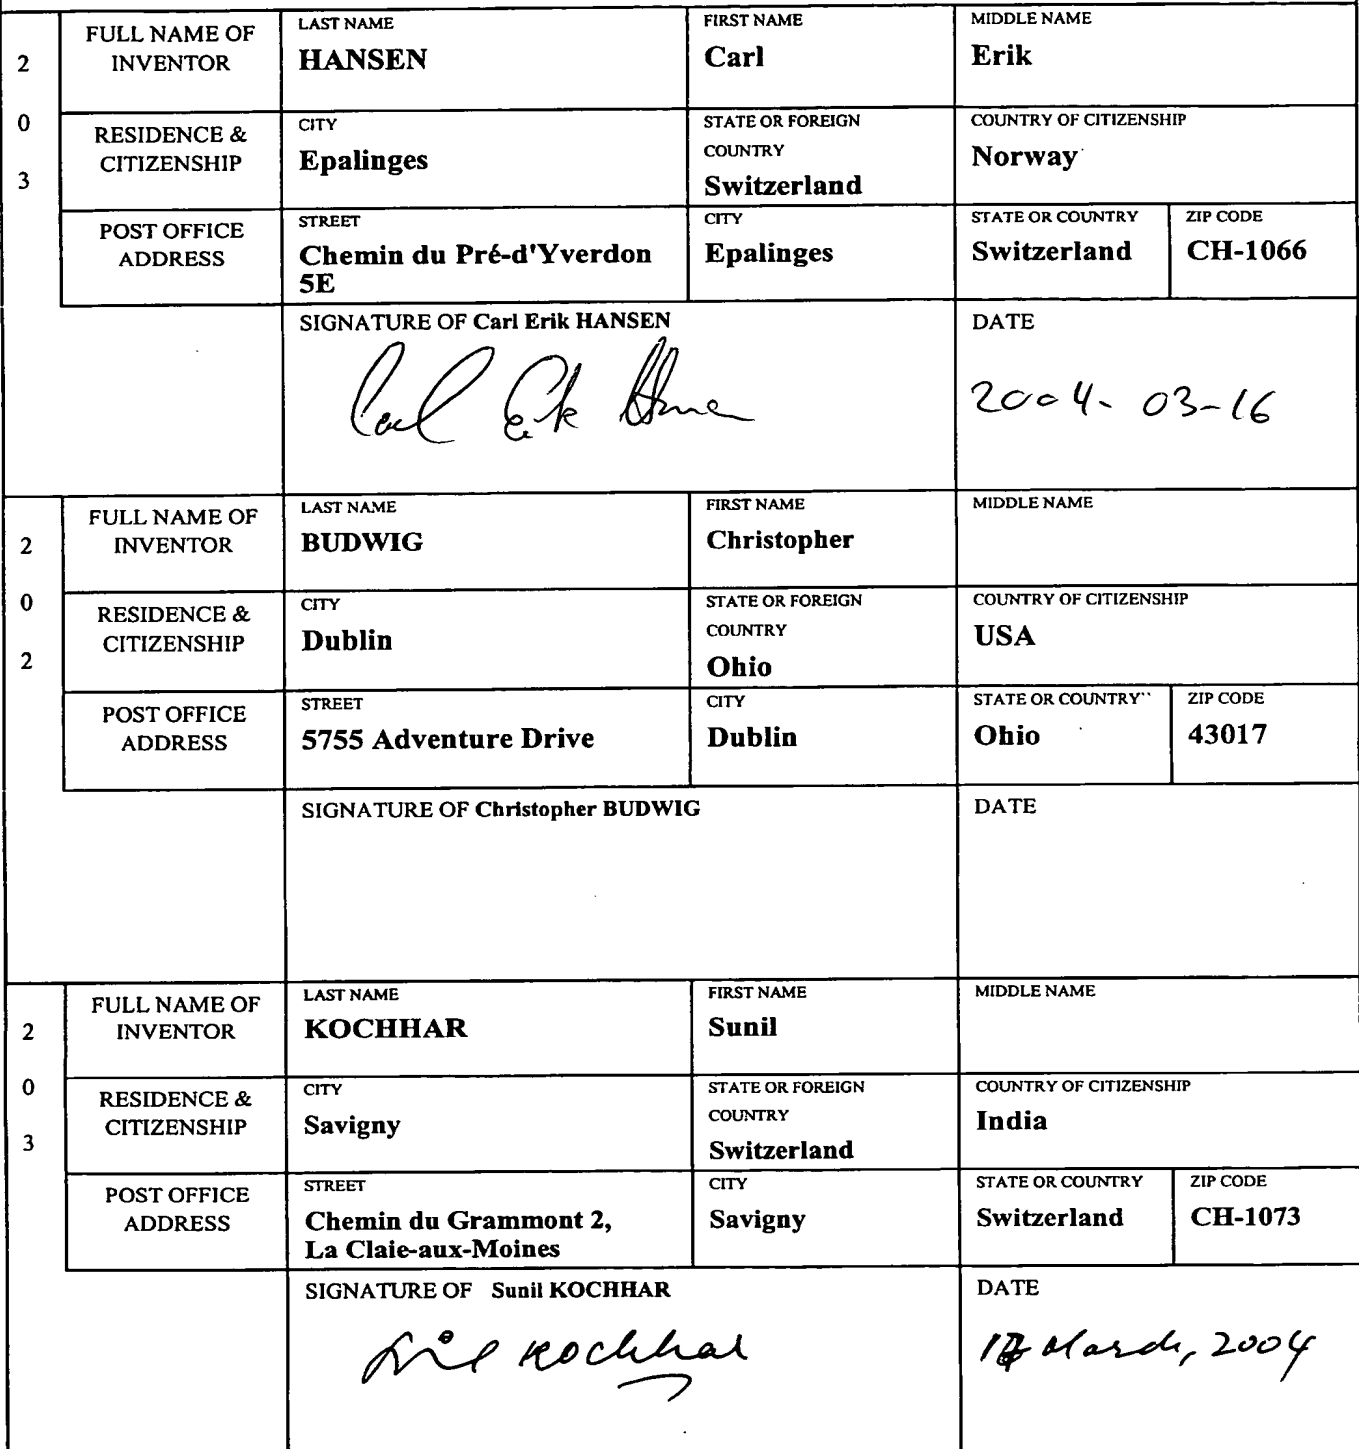 2
0
3
FULL NAME OF
INVENTOR
LAST NAME
HANSEN
FIRST NAME
Carl
MIDDLE NAME
Erik
RESIDENCE &
CITIZENSHIP
CITY
Epalinges
STATE OR FOREIGN
COUNTRY
Switzerland
COUNTRY OF CITIZENSHIP
Norway
POST OFFICE
ADDRESS
STREET
Chemin du Pré-d'Yverdon
5E
CITY
Epalinges
STATE OR COUNTRY
Switzerland
ZIP CODE
CH-1066
SIGNATURE OF Carl Erik HANSEN
Carl Erik Hansen
DATE
2004-03-16
2
0
2
FULL NAME OF
INVENTOR
LAST NAME
BUDWIG
FIRST NAME
Christopher
MIDDLE NAME
RESIDENCE &
CITIZENSHIP
CITY
Dublin
STATE OR FOREIGN
COUNTRY
Ohio
COUNTRY OF CITIZENSHIP
USA
POST OFFICE
ADDRESS
STREET
5755 Adventure Drive
CITY
Dublin
STATE OR COUNTRY
Ohio
ZIP CODE
43017
SIGNATURE OF Christopher BUDWIG
DATE
2
0
3
FULL NAME OF
INVENTOR
LAST NAME
KOCHHAR
FIRST NAME
Sunil
MIDDLE NAME
RESIDENCE &
CITIZENSHIP
CITY
Savigny
STATE OR FOREIGN
COUNTRY
Switzerland
COUNTRY OF CITIZENSHIP
India
POST OFFICE
ADDRESS
STREET
Chemin du Grammont 2,
La Claie-aux-Moines
CITY
Savigny
STATE OR COUNTRY
Switzerland
ZIP CODE
CH-1073
SIGNATURE OF Sunil KOCHHAR
Sunil Kochhar
DATE
March, 2004